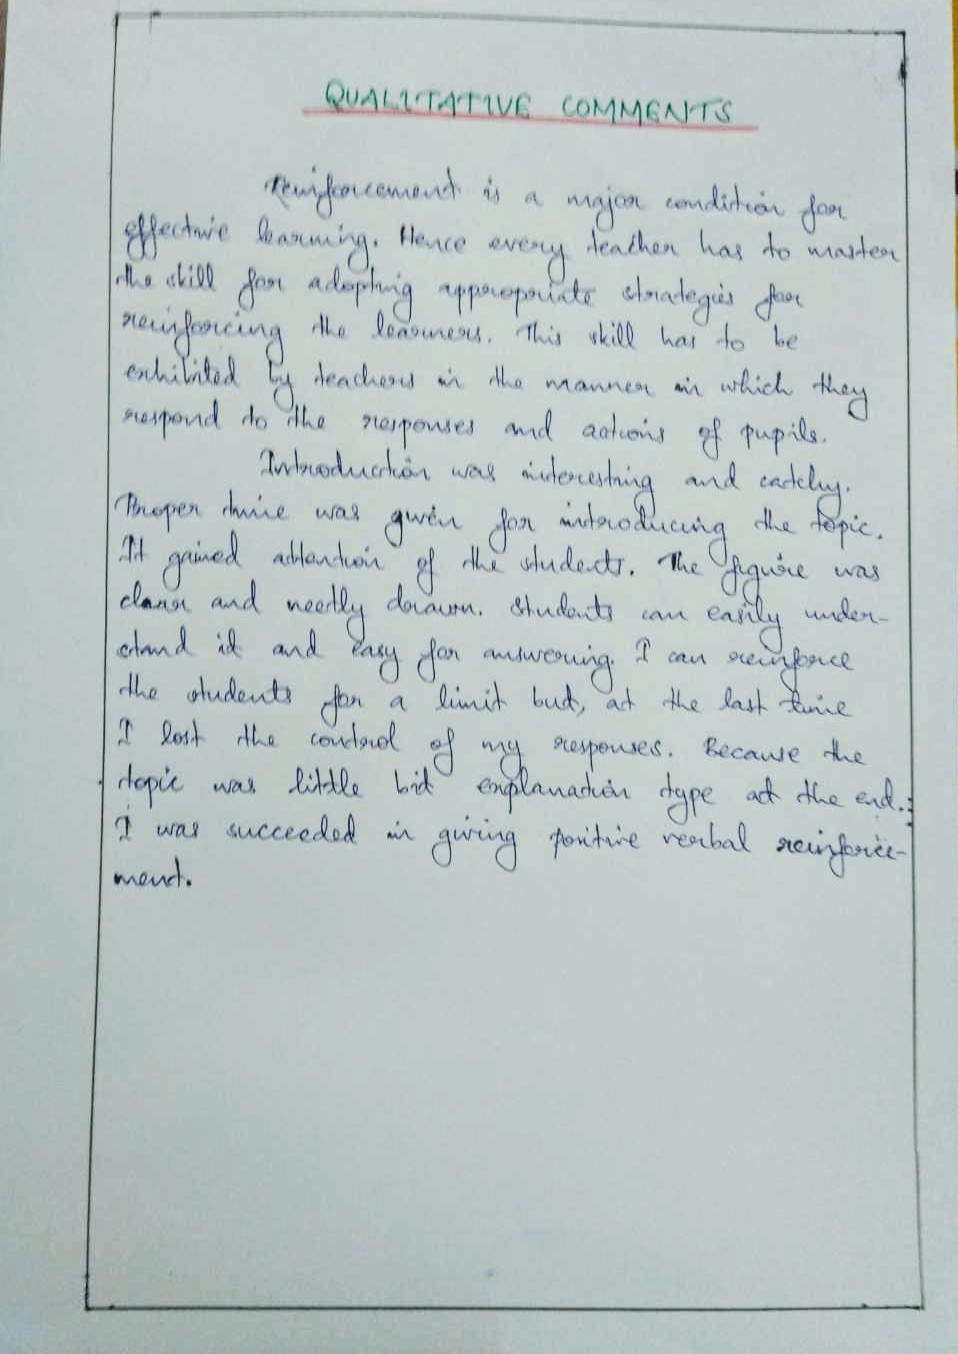 QUALITATIVE COMMENTS
Reinforcement is a major condition for
effective learning. Hence every teacher has to master
the skill for adopting appropriate strategies for
reinforcing the learners. This skill has to be
exhibited by teachers in the manner in which they
respond to the responses and actions of pupils.
Introduction was interesting and catchy.
Proper time was given for introducing the topic.
It gained attention of the students. The figure was
clear and neetly drawn. Students can easily under-
stand it and easy for answering. I can reinforce
the students for a limit but, at the last time
I lost the control of my responses. Because the
topic was little bit explanation type at the end.
I was succeeded in giving positive verbal reinforce-
ment.